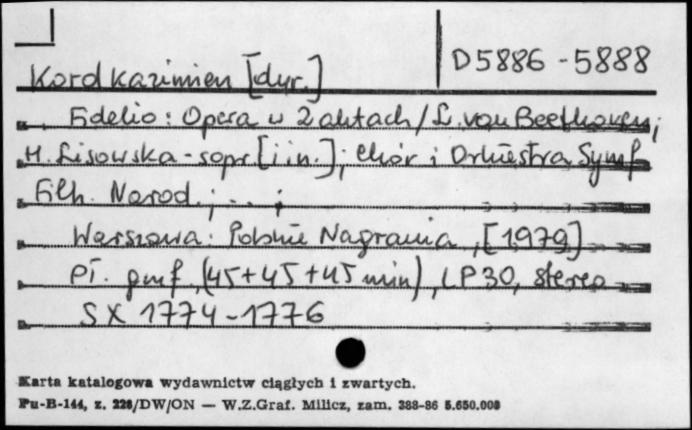 D5886-5888
Kord Kazimierz [dyr.]
Fidelio: Opera w 2 aktach / L. van Beethoven;
H. Lisowska-sopr. [i in.]; Chór i Orkiestra Symf.
Filh. Narod.; ... ;
Warszawa: Polskie Nagrania, [1979]
Pł. gmf., (45+45+45 min), LP30, stereo
SX 1774-1776
Karta katalogowa wydawnictw ciągłych i zwartych.
Pu-B-144, z. 228/DW/ON — W.Z.Graf. Milicz, zam. 388-86 5.650.000